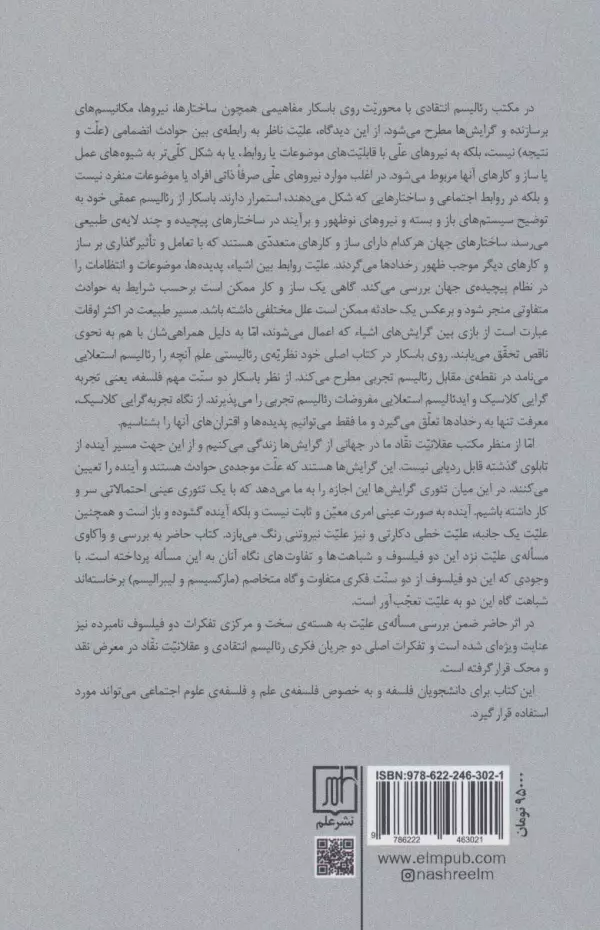 در مکتب رئالیسم انتقادی با محوریّت روی باسکار مفاهیمی همچون ساختارها، نیروها، مکانیسم‌های
برسازنده و گرایش‌ها مطرح می‌شود. از این دیدگاه، علیّت ناظر به رابطه‌ی بین حوادث انضمامی (علّت و
نتیجه) نیست، بلکه به نیروهای علّی با قابلیّت‌های موضوعات یا روابط، یا به شکل کلّی‌تر به شیوه‌های عمل
یا ساز و کارهای آنها مربوط می‌شود. در اغلب موارد نیروهای علّی صرفاً ذاتی افراد یا موضوعات منفرد نیست
و بلکه در روابط اجتماعی و ساختارهایی که شکل می‌دهند، استمرار دارند. باسکار از رئالیسم عمقی خود به
توضیح سیستم‌های باز و بسته و نیروهای نوظهور و برآیند در ساختارهای پیچیده و چند لایه‌ی طبیعی
می‌رسد. ساختارهای جهان هرکدام دارای ساز و کارهای متعددّی هستند که با تعامل و تأثیرگذاری بر ساز
و کارهای دیگر موجب ظهور رخدادها می‌گردند. علیّت روابط بین اشیاء، پدیده‌ها، موضوعات و انتظامات را
در نظام پیچیده‌ی جهان بررسی می‌کند. گاهی یک ساز و کار ممکن است برحسب شرایط به حوادث
متفاوتی منجر شود و برعکس یک حادثه ممکن است علل مختلفی داشته باشد. مسیر طبیعت در اکثر اوقات
عبارت است از بازی بین گرایش‌های اشیاء که اعمال می‌شوند، امّا به دلیل همراهی‌شان با هم به نحوی
ناقص تحقّق می‌یابند. روی باسکار در کتاب اصلی خود نظریّه‌ی رئالیستی علم آنچه را رئالیسم استعلایی
می‌نامد در نقطه‌ی مقابل رئالیسم تجربی مطرح می‌کند. از نظر باسکار دو سنّت مهم فلسفه، یعنی تجربه
گرایی کلاسیک و ایدئالیسم استعلایی مفروضات رئالیسم تجربی را می‌پذیرند. از نگاه تجربه‌گرایی کلاسیک،
معرفت تنها به رخدادها تعلّق می‌گیرد و ما فقط می‌توانیم پدیده‌ها و اقتران‌های آنها را بشناسیم.
امّا از منظر مکتب عقلانیّت نقّاد ما در جهانی از گرایش‌ها زندگی می‌کنیم و از این جهت مسیر آینده از
تابلوی گذشته قابل ردیابی نیست. این گرایش‌ها هستند که علّت موجده‌ی حوادث هستند و آینده را تعیین
می‌کنند. در این میان تئوری گرایش‌ها این اجازه را به ما می‌دهد که با یک تئوری عینی احتمالاتی سر و
کار داشته باشیم. آینده به صورت عینی امری معیّن و ثابت نیست و بلکه آینده گشوده و باز است و همچنین
علیّت یک جانبه، علیّت خطی دکارتی و نیز علیّت نیوتنی رنگ می‌بازد. کتاب حاضر به بررسی و واکاوی
مسأله‌ی علیّت نزد این دو فیلسوف و شباهت‌ها و تفاوت‌های نگاه آنان به این مسأله پرداخته است. با
وجودی که این دو فیلسوف از دو سنّت فکری متفاوت و گاه متخاصم (مارکسیسم و لیبرالیسم) برخاسته‌اند
شباهت گاه این دو به علیّت تعجّب‌آور است.
در اثر حاضر ضمن بررسی مسأله‌ی علیّت به هسته‌ی سخت و مرکزی تفکرات دو فیلسوف نامبرده نیز
عنایت ویژه‌ای شده است و تفکرات اصلی دو جریان فکری رئالیسم انتقادی و عقلانیّت نقّاد در معرض نقد
و محک قرار گرفته است.
این کتاب برای دانشجویان فلسفه و به خصوص فلسفه‌ی علم و فلسفه‌ی علوم اجتماعی می‌تواند مورد
استفاده قرار گیرد.
نشر علم
ISBN:978-622-246-302-1
9 786222 463021
۹۵۰۰۰ تومان
www.elmpub.com
nashreelm